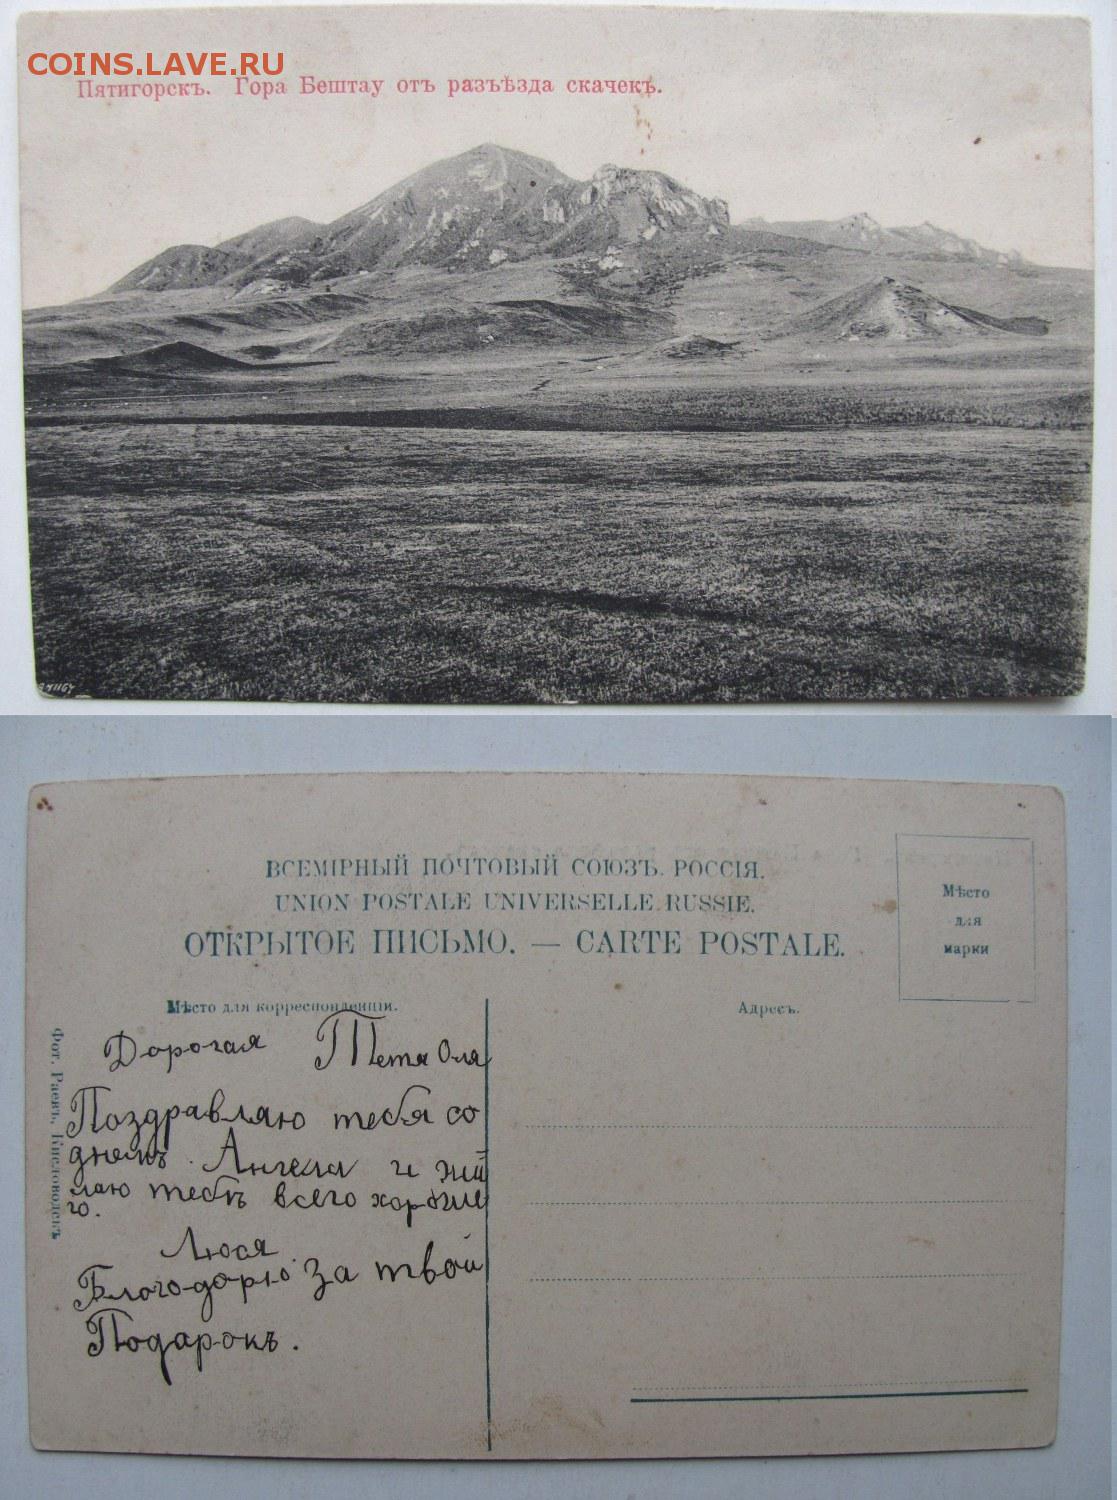 COINS.LAVE.RU
Пятигорскъ. Гора Бештау отъ разъѣзда скачекъ.
ВСЕМІРНЫЙ ПОЧТОВЫЙ СОЮЗЪ. РОССІЯ.
UNION POSTALE UNIVERSELLE. RUSSIE.
ОТКРЫТОЕ ПИСЬМО. — CARTE POSTALE.
Мѣсто
для
марки
Мѣсто для корреспонденціи.
Адресъ.
Фот. Раевъ, Кисловодскъ
Дорогая Тетя Оля
Поздравляю тебя со
днемъ Ангела и жи
лаю тебѣ всего хороше
го.
Люся
Благодорю за твой
Подарокъ.